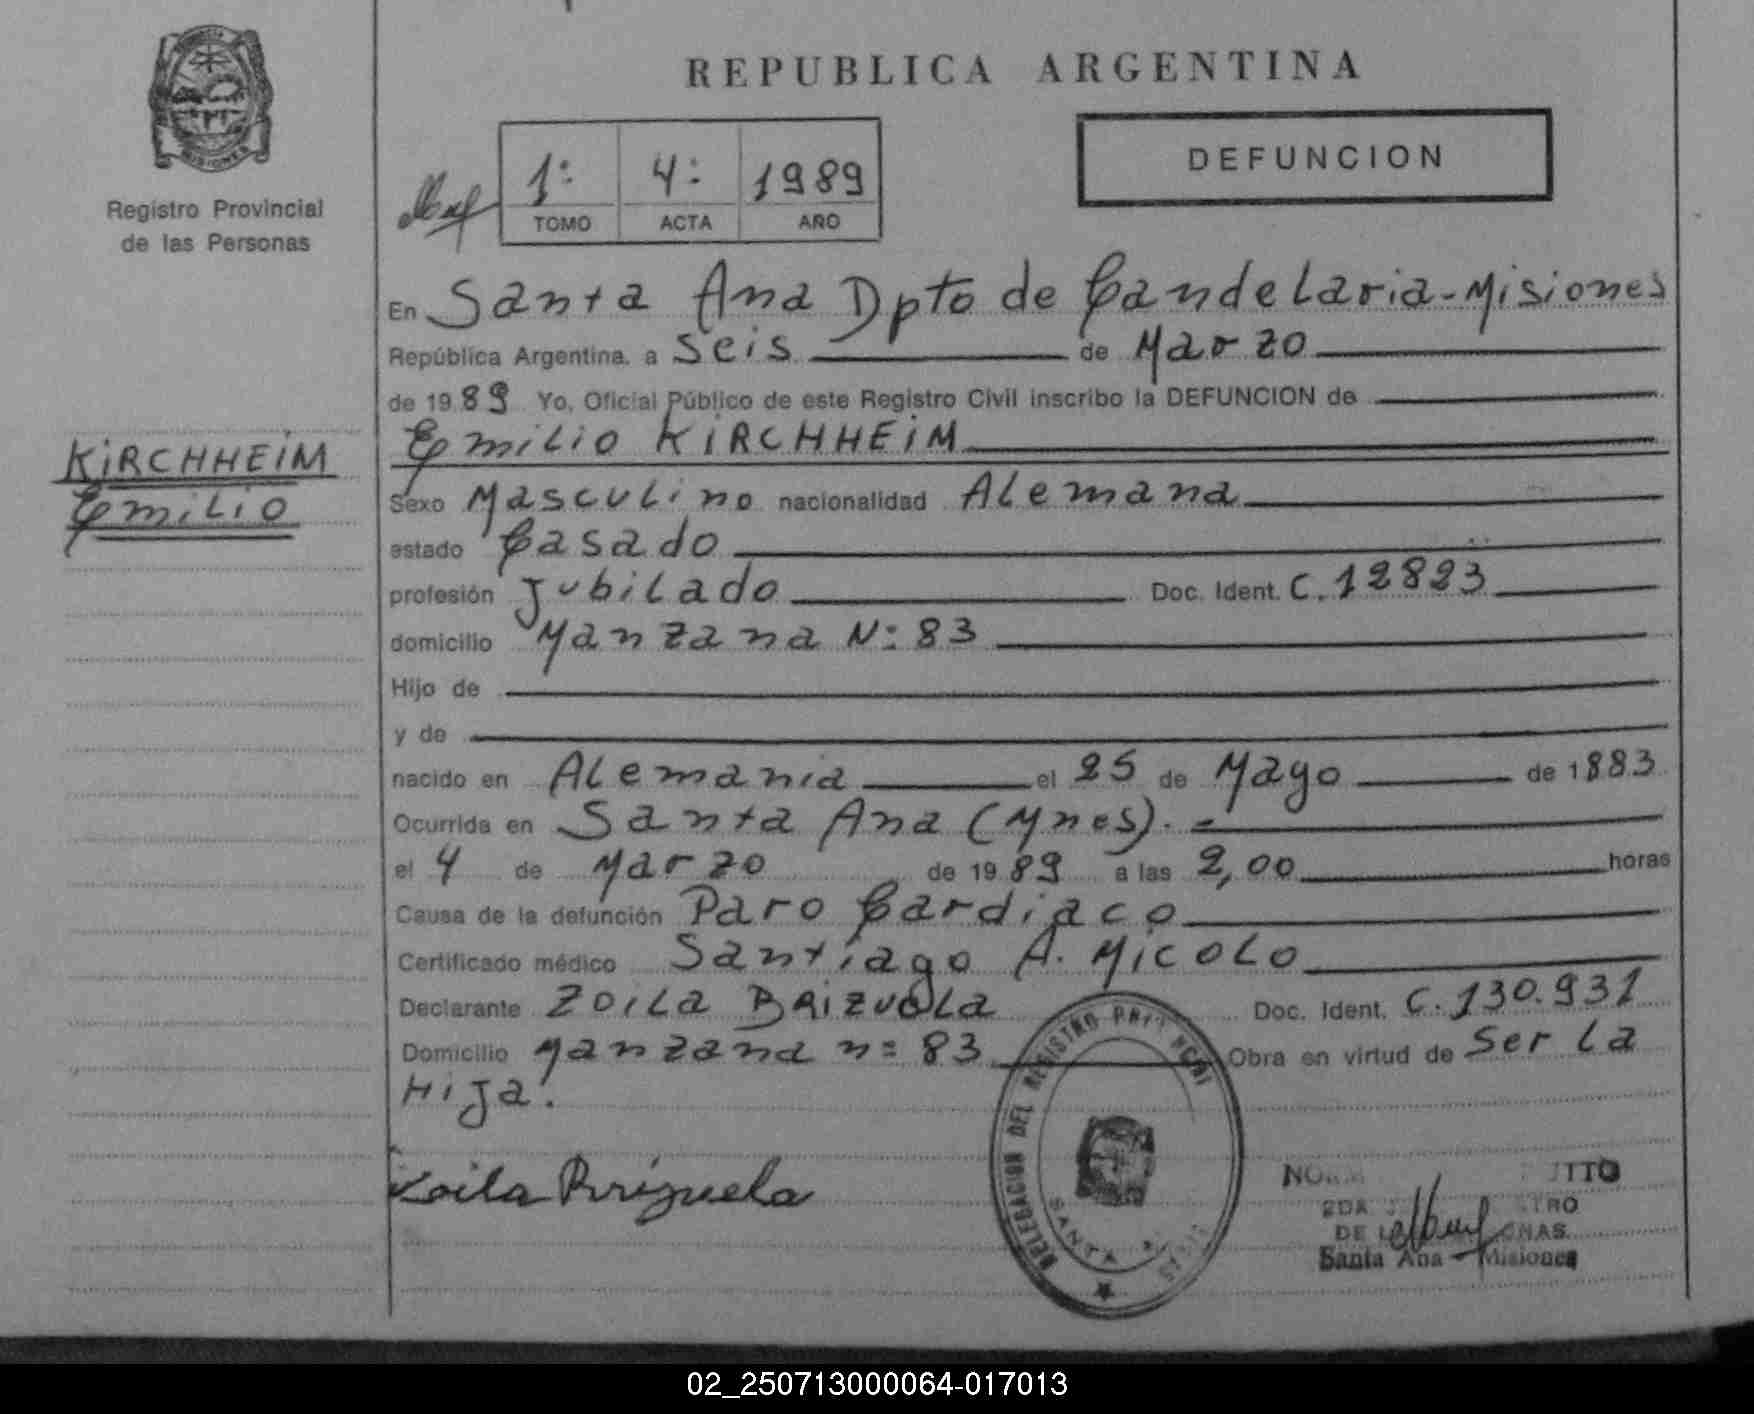 REPUBLICA ARGENTINA
MISIONES
Registro Provincial
de las Personas
1: 4: 1989
TOMO ACTA AÑO
DEFUNCION
En Santa Ana Dpto de Candelaria-Misiones
República Argentina, a Seis de Marzo
de 1989 Yo, Oficial Público de este Registro Civil inscribo la DEFUNCION de
KiRCHHEiM
Emilio
Emilio KiRCHHEiM
Sexo Masculino nacionalidad Alemana
estado Casado
profesión Jubilado Doc. Ident. C. 12823
domicilio Manzana N: 83
Hijo de
y de
nacido en Alemania el 25 de Mayo de 1883
Ocurrida en Santa Ana (Mnes).-
el 4 de Marzo de 1989 a las 2,00 horas
Causa de la defunción Paro Cardiaco
Certificado médico Santiago A. Micolo
Declarante Zoila Brizuela Doc. Ident. C. 130.931
Domicilio Manzana n= 83 Obra en virtud de Ser la
Hija.
DELEGACION DEL REGISTRO
SANTA
Zoila Brizuela
2DA
Santa Ana - Misiones
02_250713000064-017013